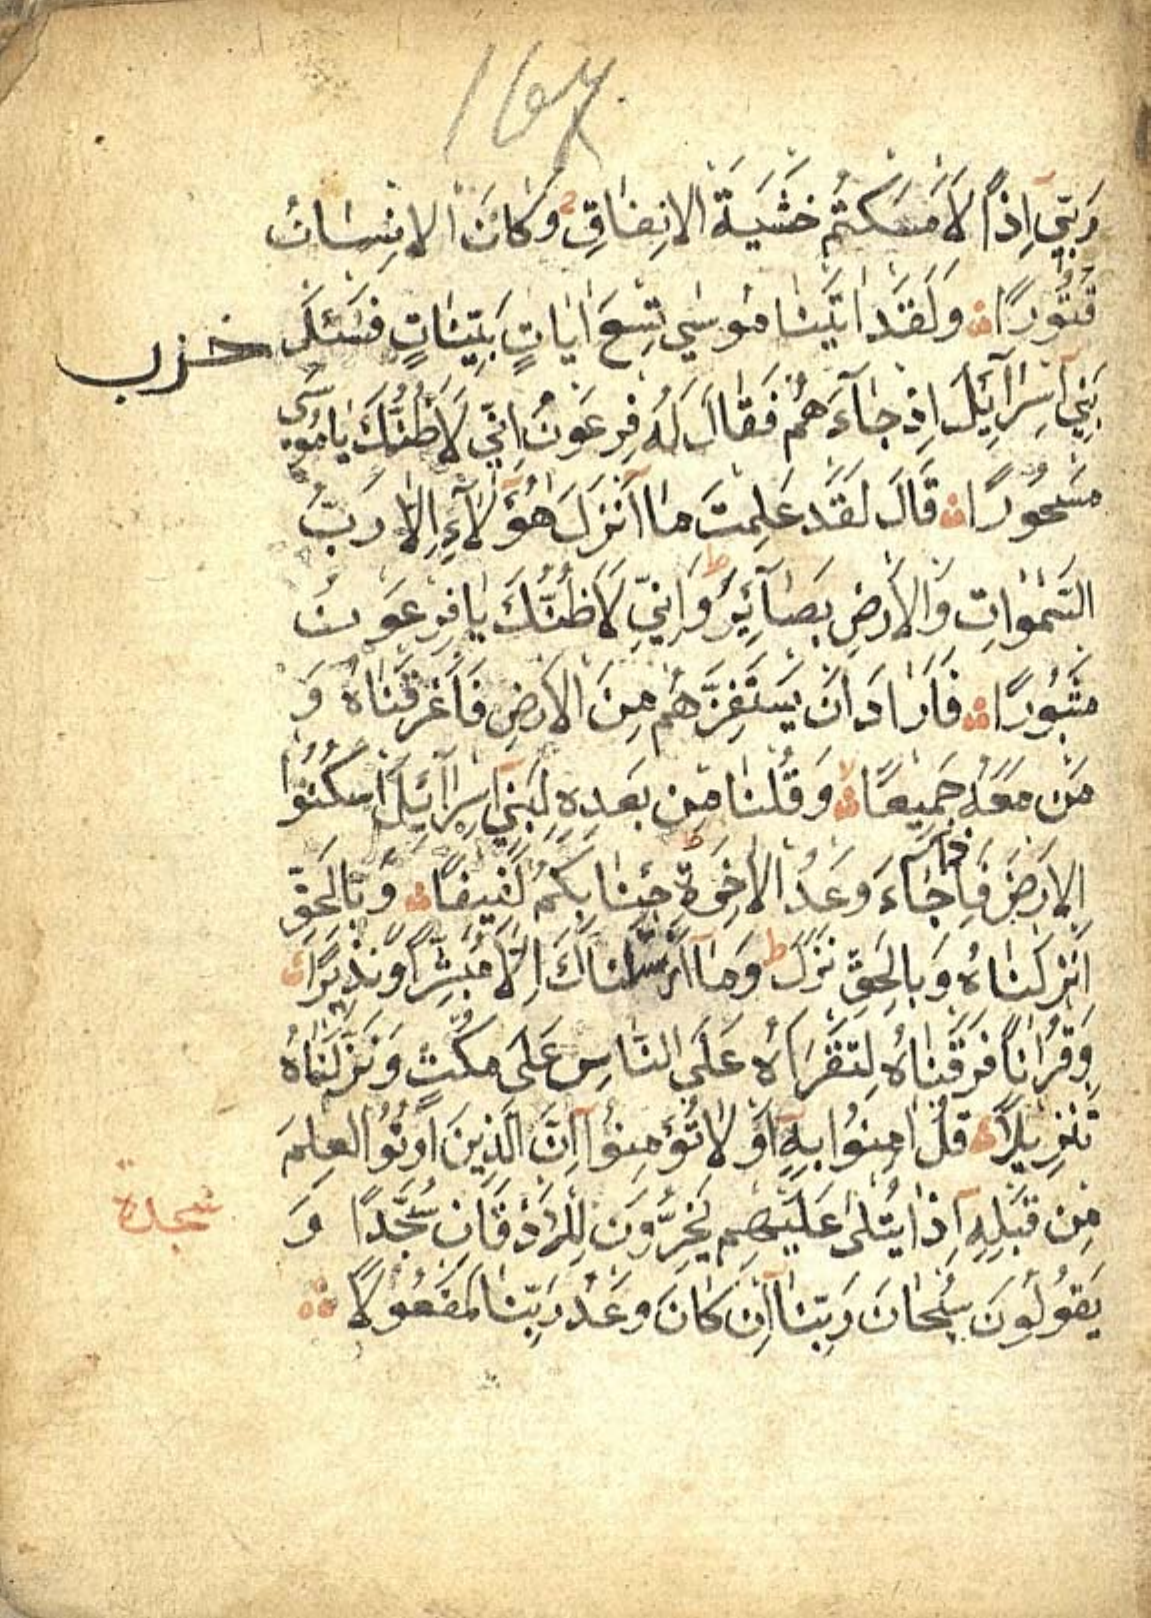 رَبّي اِذًا لَاَمْسَكْتُمْ خَشْيَةَ الاِنفاقِ وَكانَ الاِنْسانُ
قَتُورًا وَلَقَدْ اتَيْنا موسي تِسْعَ ايَاتٍ بَيّناتٍ فَسْئَلْ
حزب
بَنِي اِسْرآئِلَ اِذ جآءَهُمْ فَقالَ لَهُ فِرعَوْنُ اِنّي لَاَظُنُّكَ يامُوسَى
مَسْحُورًا قالَ لَقَدْ عَلِمتَ ما اَنْزَلَ هؤُلآءِ اِلا رَبُّ
السَّمواتِ وَالاَرْضِ بَصآئِرَ وَاِنّي لَاَظُنُّكَ يافِرعَوْنُ
مَثْبُورًا فَاَرادَ اَنْ يَسْتَفِزَّهُمْ مِنَ الاَرْضِ فَاَغْرَقْناهُ وَ
مَنْ مَعَهُ جَمِيعًا وَقُلْنا مِنْ بَعْدِهِ لِبَنِي اِسْرآئِلَ اسْكُنُوا
الاَرْضَ فَاِذا جآءَ وَعْدُ الاخِرَةِ جِئْنا بِكُمْ لَفِيفًا وَبِالْحَقِّ
اَنْزَلْناهُ وَبِالْحَقِّ نَزَلَ وَما اَرْسَلْناكَ اِلَّا مُبَشِّرًا وَنَذِيرًا
وَقُرْانًا فَرَقْناهُ لِتَقْرَاَهُ عَلَى النَّاسِ عَلى مُكْثٍ وَنَزَّلْناهُ
تَنْزِيلًا قُلْ امِنُوا بِهِ اَوْ لا تُؤْمِنُوا اِنَّ الَّذِينَ اُوتُوا الْعِلْمَ
مِنْ قَبْلِهِ اِذا يُتْلى عَلَيْهِمْ يَخِرُّونَ لِلْاَذْقَانِ سُجَّدًا وَ
سجدة
يَقُولُونَ سُبْحانَ رَبِّنا اِنْ كانَ وَعْدُ رَبِّنا لَمَفْعُولًا